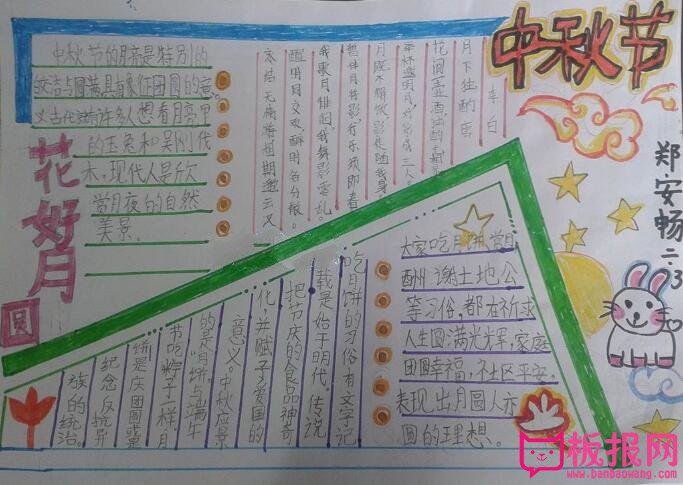 中秋节
郑安畅 二.3
花好月圆
中秋节的月亮是特别的
皎吉与圆满具有象征团圆的意
义古代就有许多人想看月亮里
的玉兔和吴刚伐
木，现代人是欣
赏月夜的自然
美景。
月下独酌 唐 李白
花间一壶酒，独酌无相亲
举杯邀明月，对影成三人。
月既不解饮，影徒随我身。
暂伴月将影，行乐须即春
我歌月徘徊，我舞影零乱。
醒时同交欢，醉时各分散。
永结无情游，相期邈云汉
大家吃月饼，赏月
酬谢土地公
等习俗，都在祈求
人生圆满光光辉，家庭
团圆幸福，社区平安，
表现出月圆人亦
圆的理想。
吃月饼的习俗有文字记
载是始于明代。传说
把节庆的食品神奇
化，并赋予了爱国的
意义。中秋应景
的是"月饼"与端午
节吃粽子一样，月
饼是庆团圆或
纪念反抗异
族的统治。
板报网
www.banbaowang.com